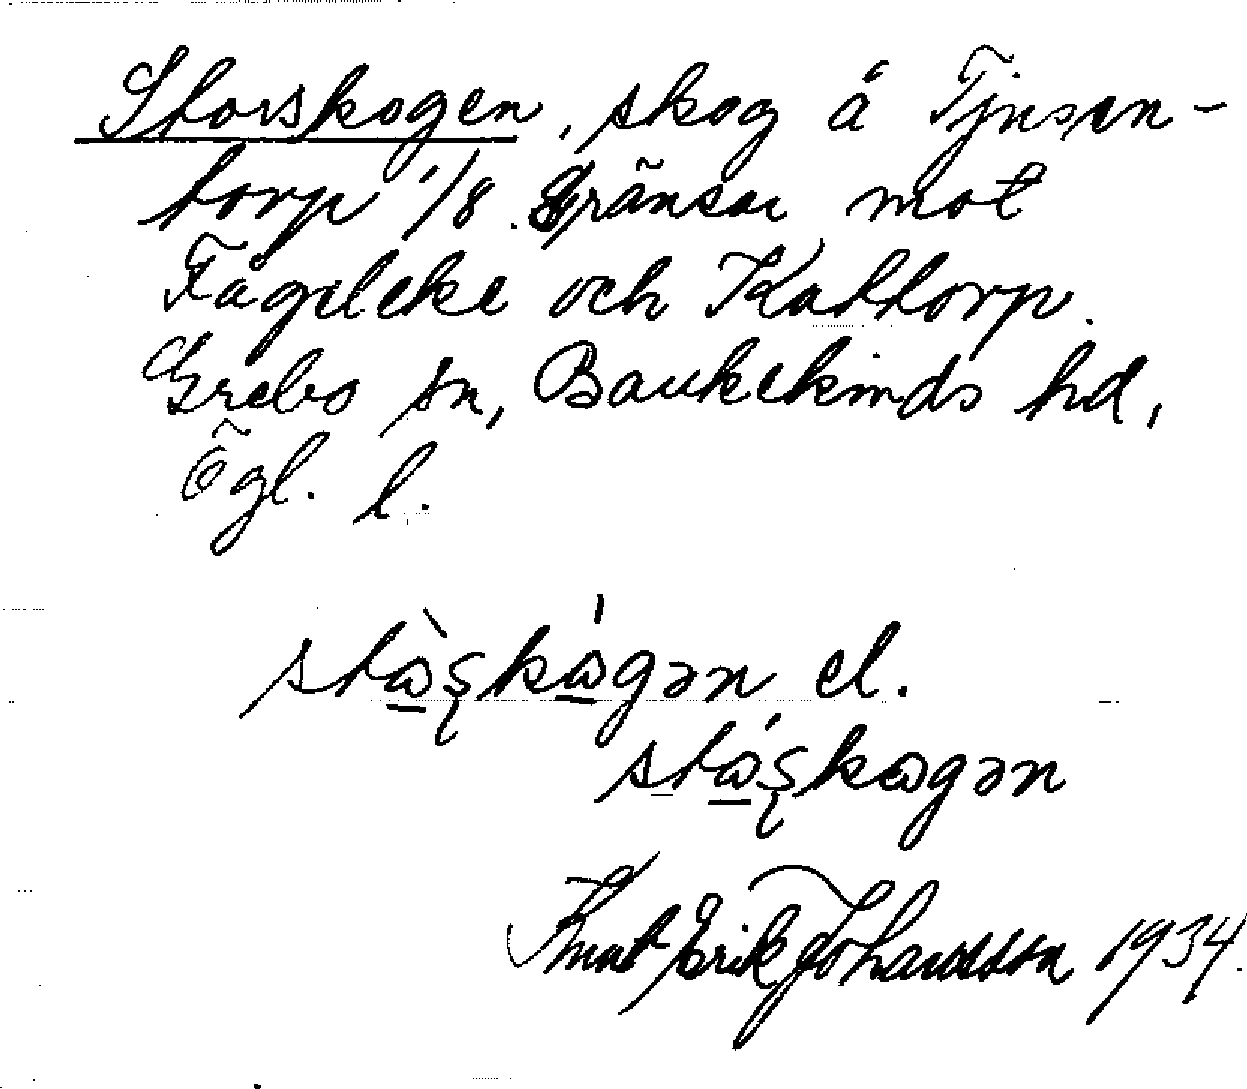 Storskogen, skog å Tjusen-
torp 1/8. Gränsar mot
Fågeleke och Kaltorp.
Grebo sn, Bankekinds hd,
Ögl. l.
el.
Knut Erik Johansson 1934.